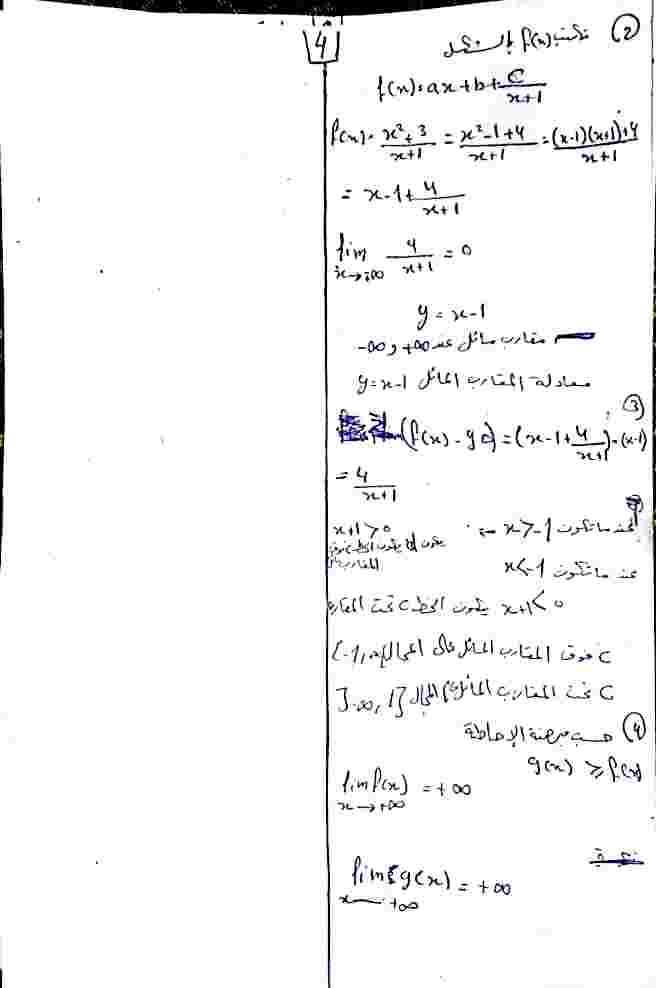 4
(2) نكتب f(x) بالشكل
f(x) = ax+b+ c/(x+1)
f(x) = (x²+3)/(x+1) = (x²-1+4)/(x+1) = ((x-1)(x+1)+4)/(x+1)
= x-1+ 4/(x+1)
lim x→+∞ 4/(x+1) = 0
y = x-1
مقارب مائل عند +∞ و -∞
معادلة المقارب المائل y=x-1
(3)
(f(x) - y) = (x-1+ 4/(x+1)) - (x-1)
= 4/(x+1)
عندما تكون x>-1 x+1>0
يكون الخط C فوق
المقارب
عندما تكون x<-1
x+1<0 يكون الخط C تحت المقارب
C فوق المقارب المائل في المجال ]-1,∞
C تحت المقارب المائل في المجال ]-∞,1[
(4) حسب مبرهنة الإحاطة
g(x) ≥ f(x)
lim f(x) = +∞
x→+∞
lim g(x) = +∞
x→+∞